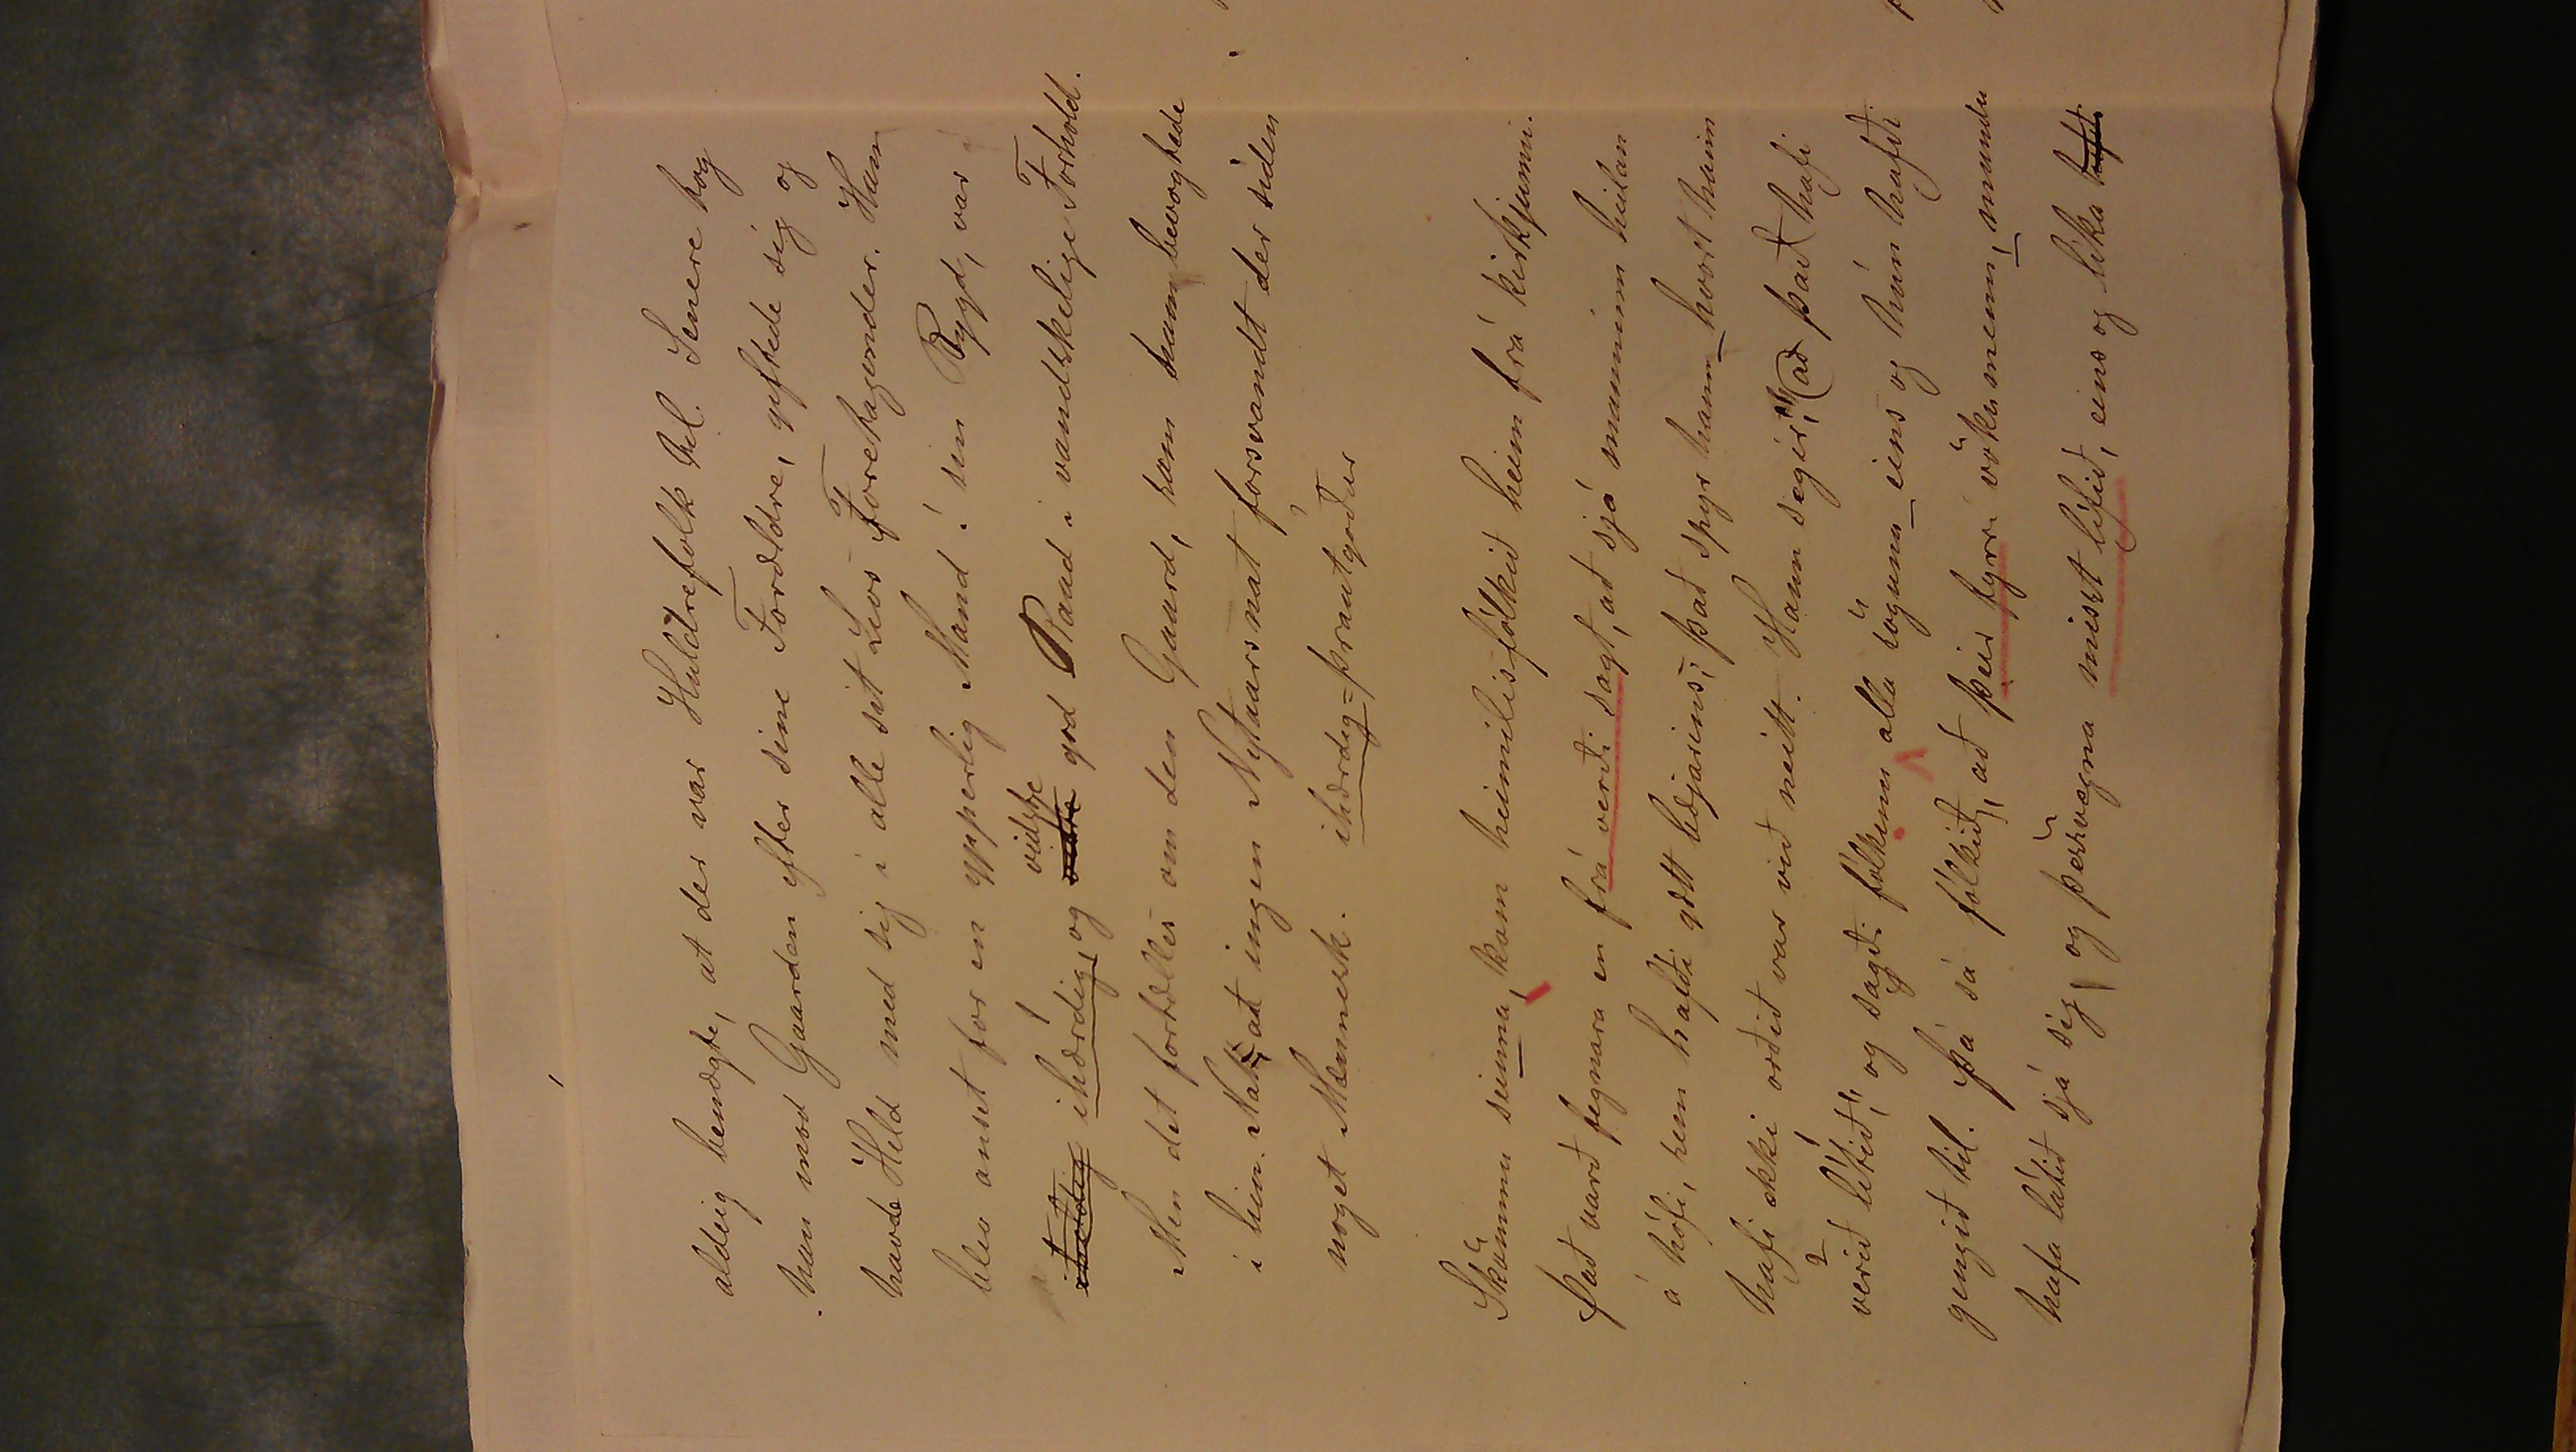 aldrig benægte, at der var Huldrefolk til. Senere tog
han mod Gaarden efter sine Forældre, giftede sig og
havde Held med sig i alle sit Livs Foretagender. Han
blev anset for en ypperlig Mand i sin Bygd, var
ihærdig, og vidste god Raad i vanskelige Forhold.
Men det fortælles om den Gaard, som han bevogtede
i hin Nat, at ingen Nytaarsnat forsvandt der siden
noget Mennesk. ihærdig = þrautgóður
Skömmu seinna, kom heimilisfólkið heim frá kirkjunni.
Það varð fegnara en frá verði sagt, að sjá manninn heilan
á hófi, sem hafði gætt bæjarins; það spyr hann hvort hann
hafi ekki orðið var við neitt. Hann segir, "(að það hafi
verið lítið," og sagði fólkinu alla söguna eins og hún hafði
gengið til. Þá sá fólkið, að þeir fyrri vökumenn, mundu
hafa látið sjá sig, og þessvegna misst lífið, eins og líka